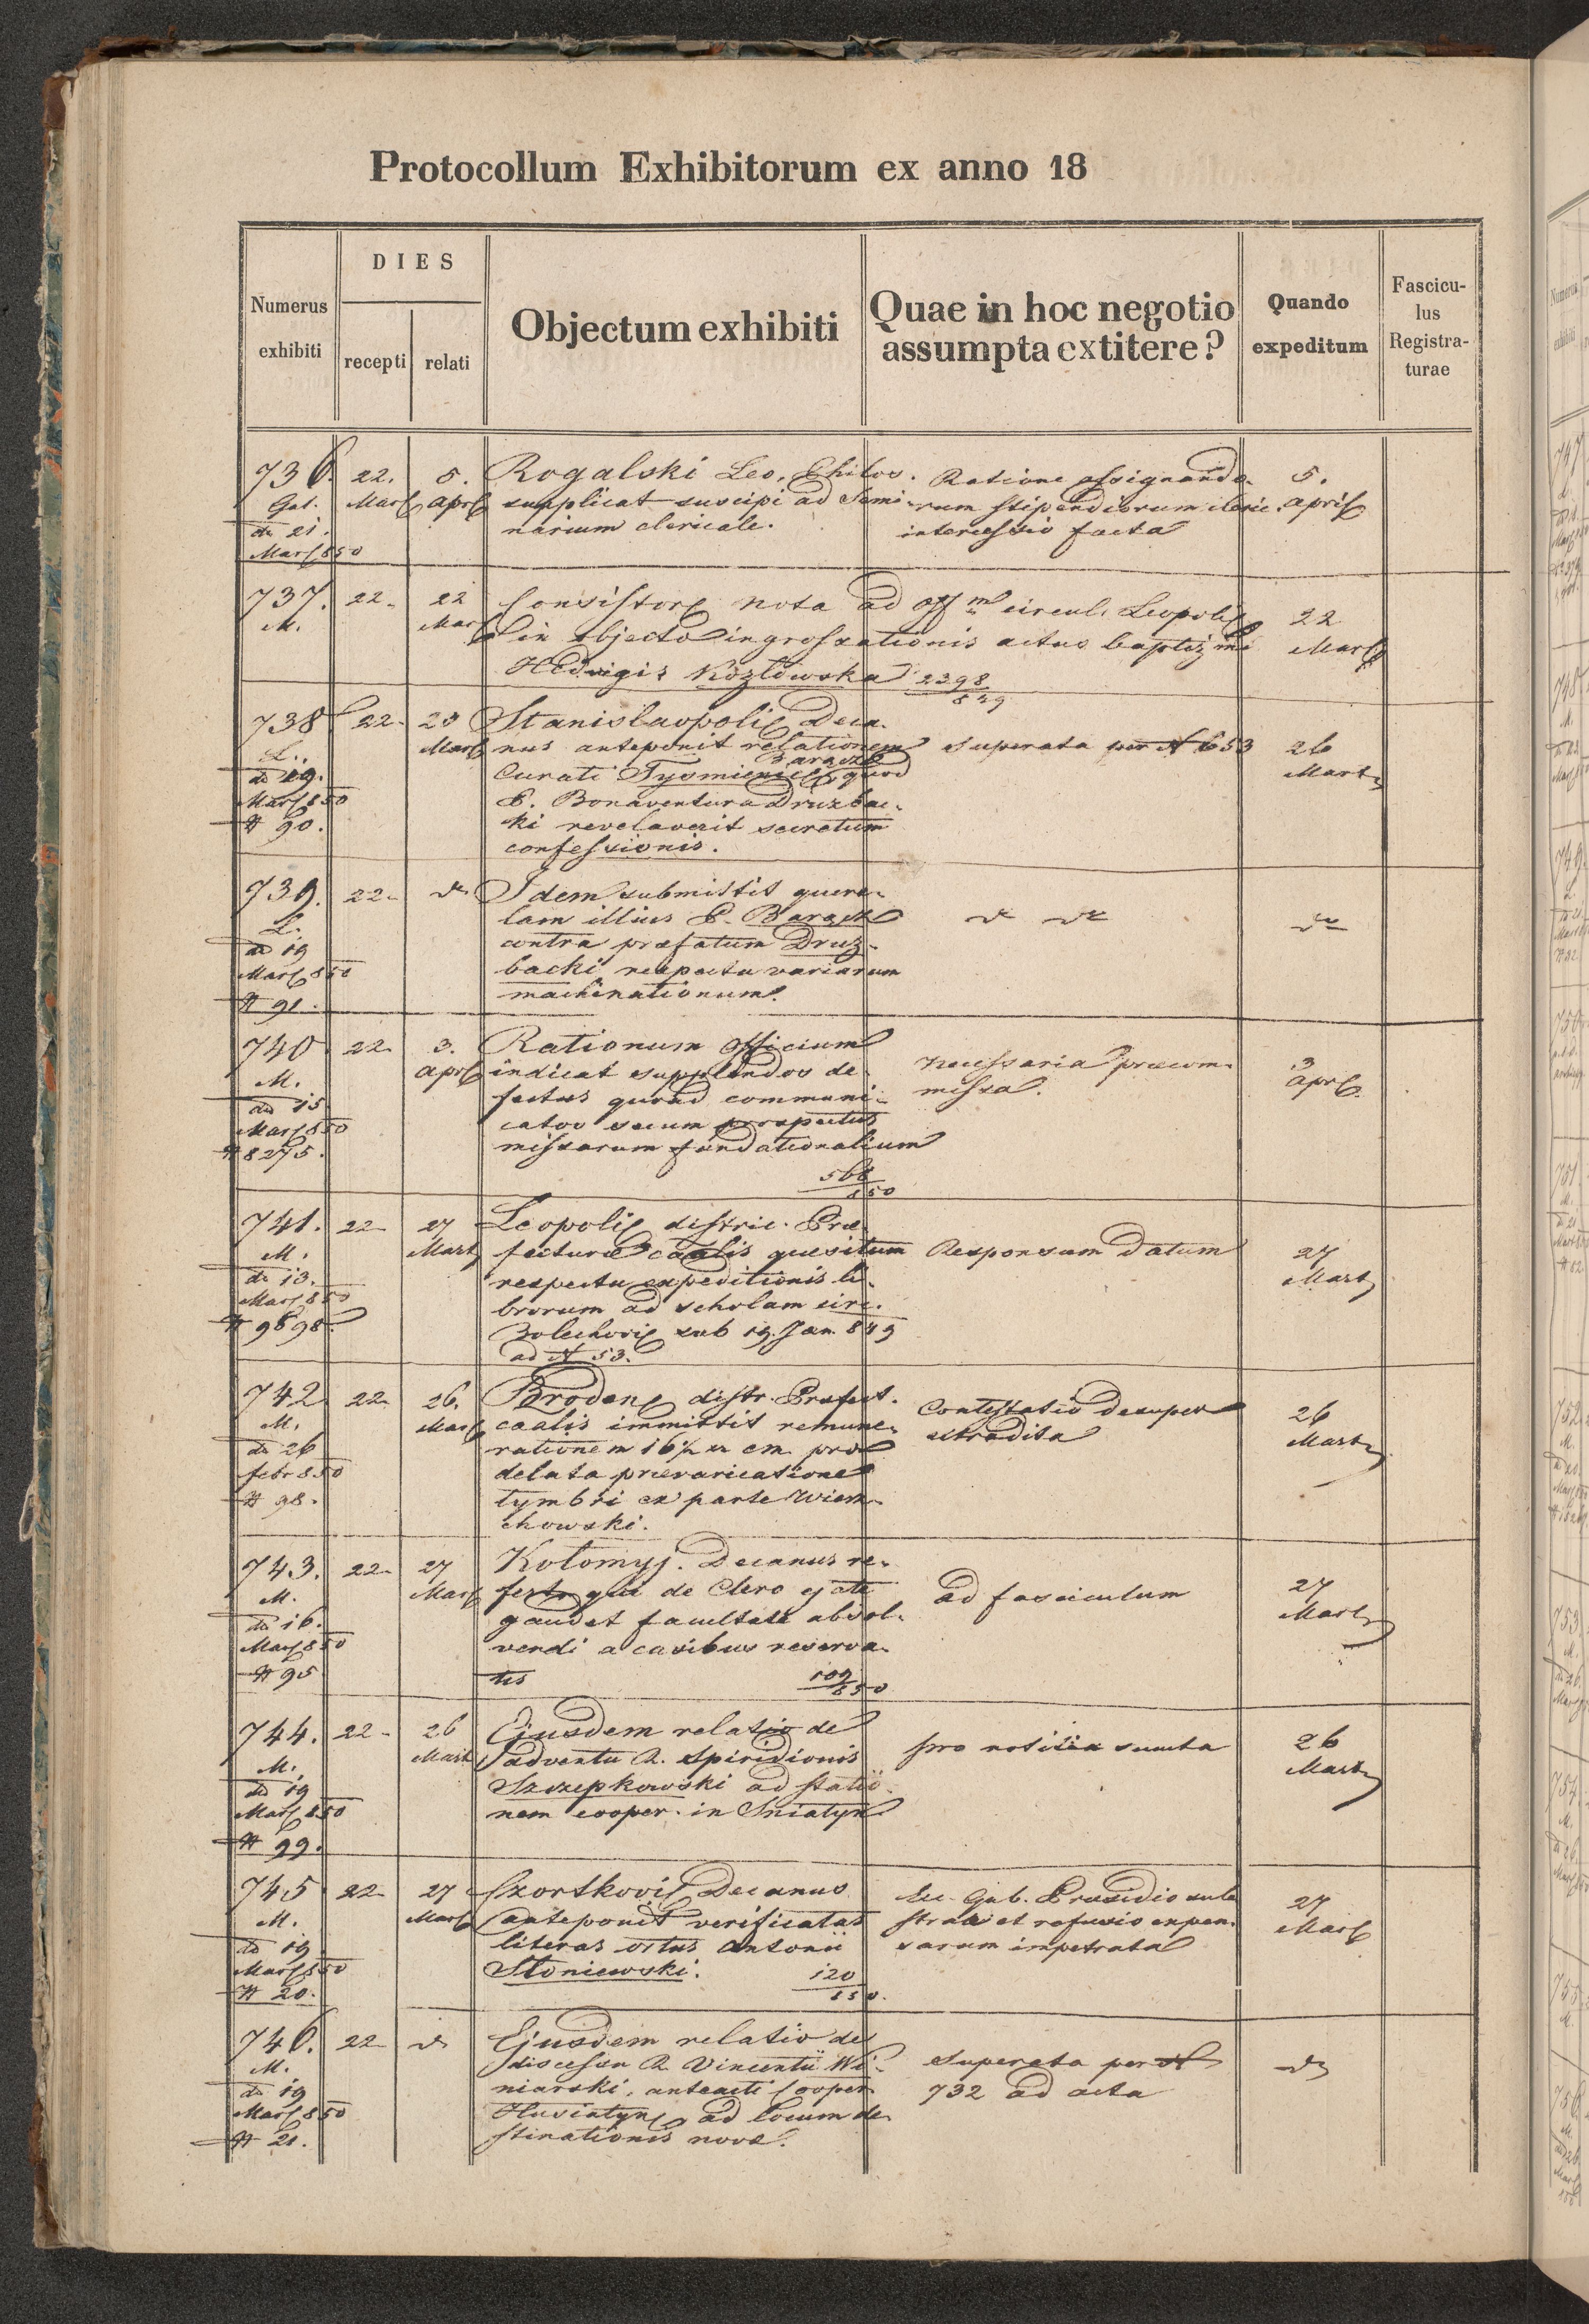 Protocollum Exhibitorum ex anno 18
Numerus exhibiti
DIES
recepti
relati
Objectum exhibiti
Quae in hoc negotio
assumpta extitere?
Quando
expeditum
Fascicu-
lus
Registra-
turae
736.
Gal.
do 21.
Mart 850
22.
Mart
5.
Apr
Rogalski Leo, Philos.
supplicat suscipi ad Semi-
narium clericale.
Ratione assignando-
rum stipendiorum cleric.
intercessio facta
5.
April
737.
M.
22.
22
Mar
Consistor nota ad Off m circul. Leopol
in objecto ingrossationis actus baptizmi
Hedvigis Kozłowska 2398
849
22
Mart
738
L.
do 19.
Mart 850
# 90.
22.
23
Mart
Stanislaopoli Deca-
nus anteponit relationem
Curati Tysmienic Baracz quod
P. Bonaventura Druzbac-
ki revelaverit secretum
confessionis.
Superata per N 653
26
Mart
739.
L.
do 19
Mart 850
# 91.
22.
do
Idem submittit quere-
lam illius P. Baracz
contra praefatum Druz-
backi respectu variarum
machinationum.
do do
do
740
M.
do 15
Mart 850
# 8275.
22.
3.
Apr
Rationum Officium
indicat supplendos de-
fectus quoad communi-
catos secum prospectus
missarum fundationalium
568
850
Necessaria praecom-
missa.
3
Apr
741.
M.
do 13.
Mart 850
# 9698.
22
27
Mart
Leopoli distric. Prae-
fecturae caalis quesitum
respectu expeditionis li-
brorum ad scholam circ.
Bolechovi sub 19. Jan. 849
ad N 53.
Responsum datum
27
Mart
742
M.
do 26
febr 850
# 98.
22
26.
Mart
Broden distr. Praefect.
caalis immittit remune-
rationem 16 xr cm. pro
delata praevaricatione
tymbri ex parte Wiem-
chowski.
Contestatio desuper
extradita
26
Mart
743.
M.
do 16.
Mart 850
# 95
22
27
Mart
Kołomyj. Decanus re-
fert qui de Clero ejate
gaudet facultate absol-
vendi a casibus reserva-
tis
109
850
ad fasciculum
27
Mart
744.
M.
do 19
Mart 850
# 99.
22
26
Mart
Ejusdem relatio de
adventu R. Spiridionis
Szczepkowski ad statio-
nem cooper. in Sniatyn
pro notitia sumta
26
Mart
745
M.
do 19
Mart 850
# 20.
22
27
Mart
Czortkovi Decanus
anteponit verificatas
literas ortus Antonii
Słoniewski.
120
850.
Exc. Gub. Praesidio sub-
stratae et refusio expen-
sarum impetrata
27
Mart
746.
M.
do 19
Mart 850
# 21.
22
do
Ejusdem relatio de
discessu R. Vincentii Wi-
niarski, anteacti Cooper.
Husiatyn ad locum de-
stinationis novae.
Superata per N
732 ad acta
do